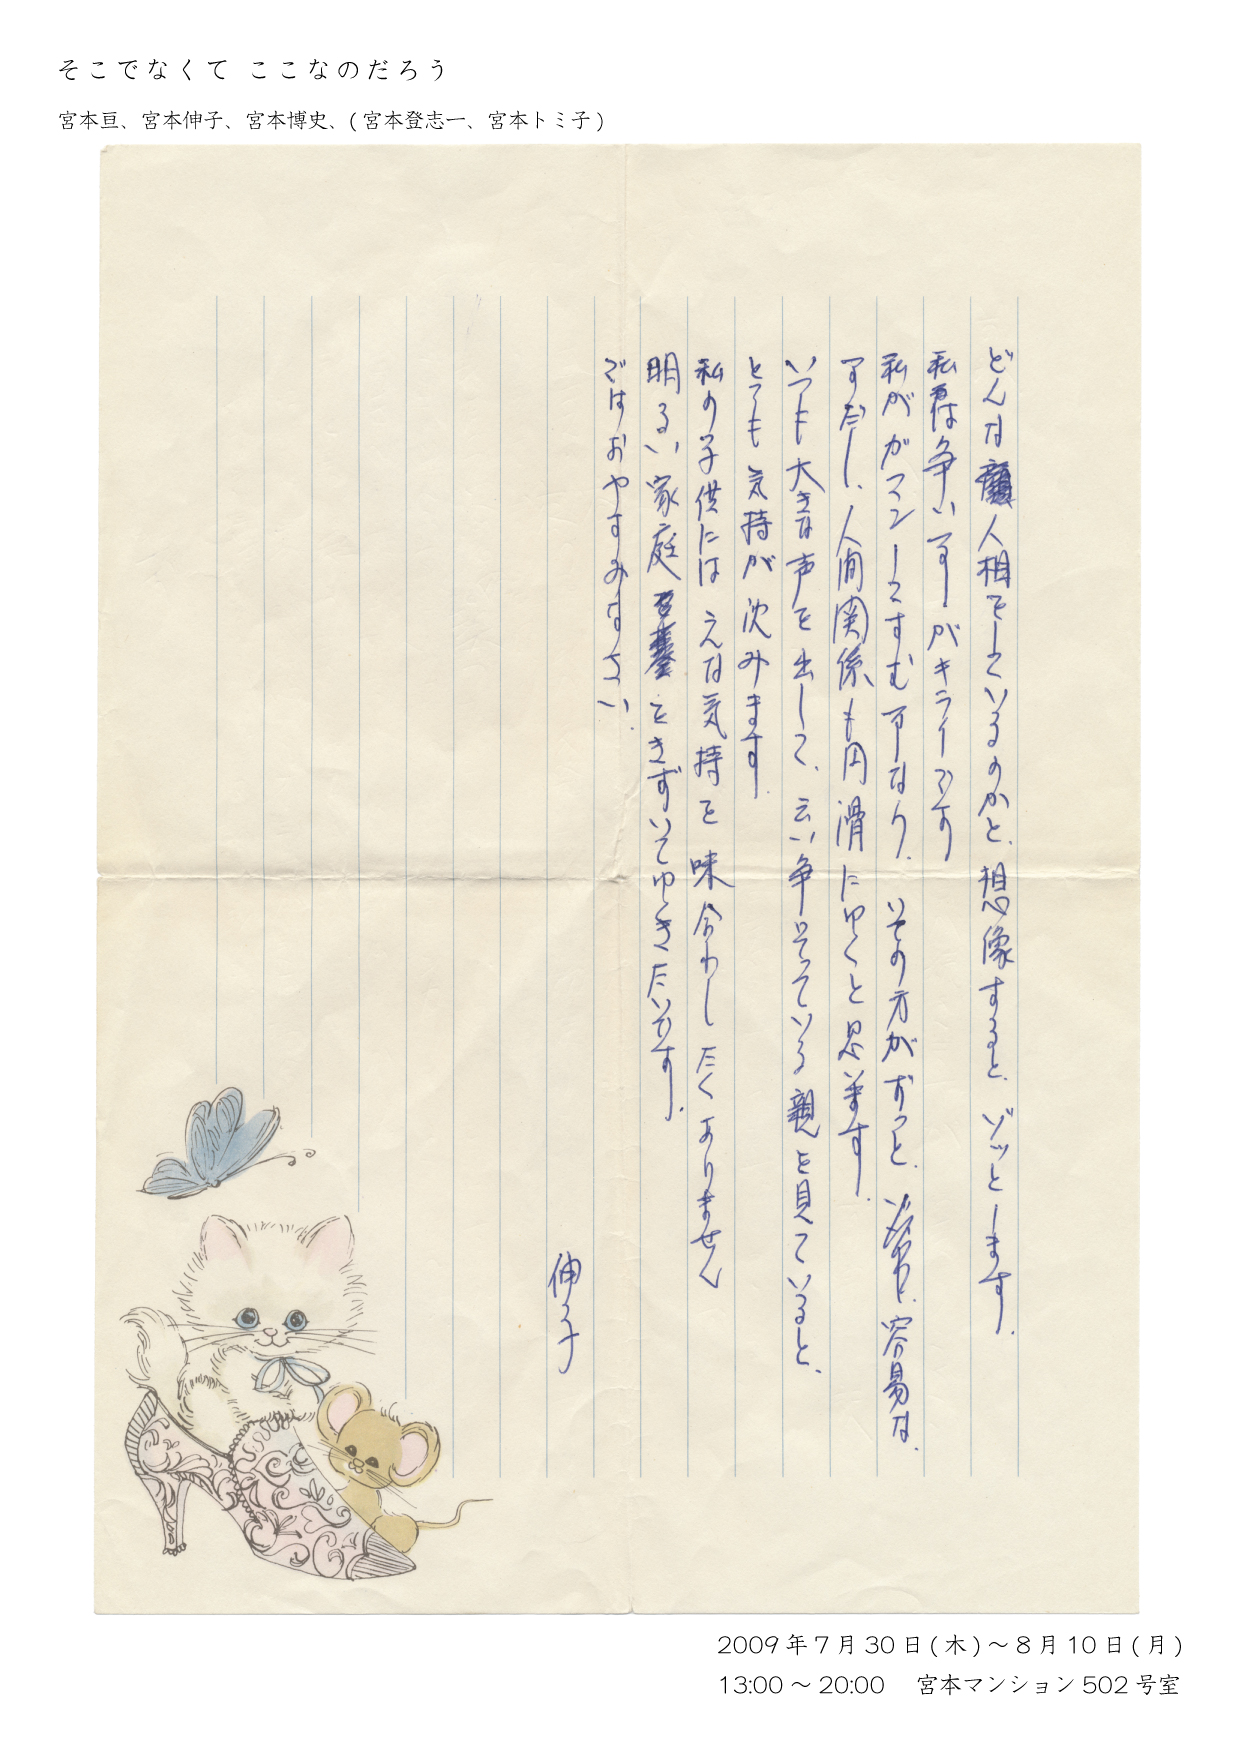 そこでなくて ここなのだろう
宮本亘、宮本伸子、宮本博史、(宮本登志一、宮本トミ子)
どんな人相をしているのかと、想像すると、ゾッとします。
私は争い事がキライです
私がガマンしてすむ事なら、その方がずっと、容易な
事だし、人間関係も円滑にゆくと思います。
いつも大きな声を出して、云い争そっている親を見ていると、
とても気持が沈みます。
私の子供にはそんな気持を味合わしたくありません
明るい家庭をきずいてゆきたいです。
ではおやすみなさい。
伸子
2009年7月30日(木)〜8月10日(月)
13:00〜20:00 宮本マンション502号室